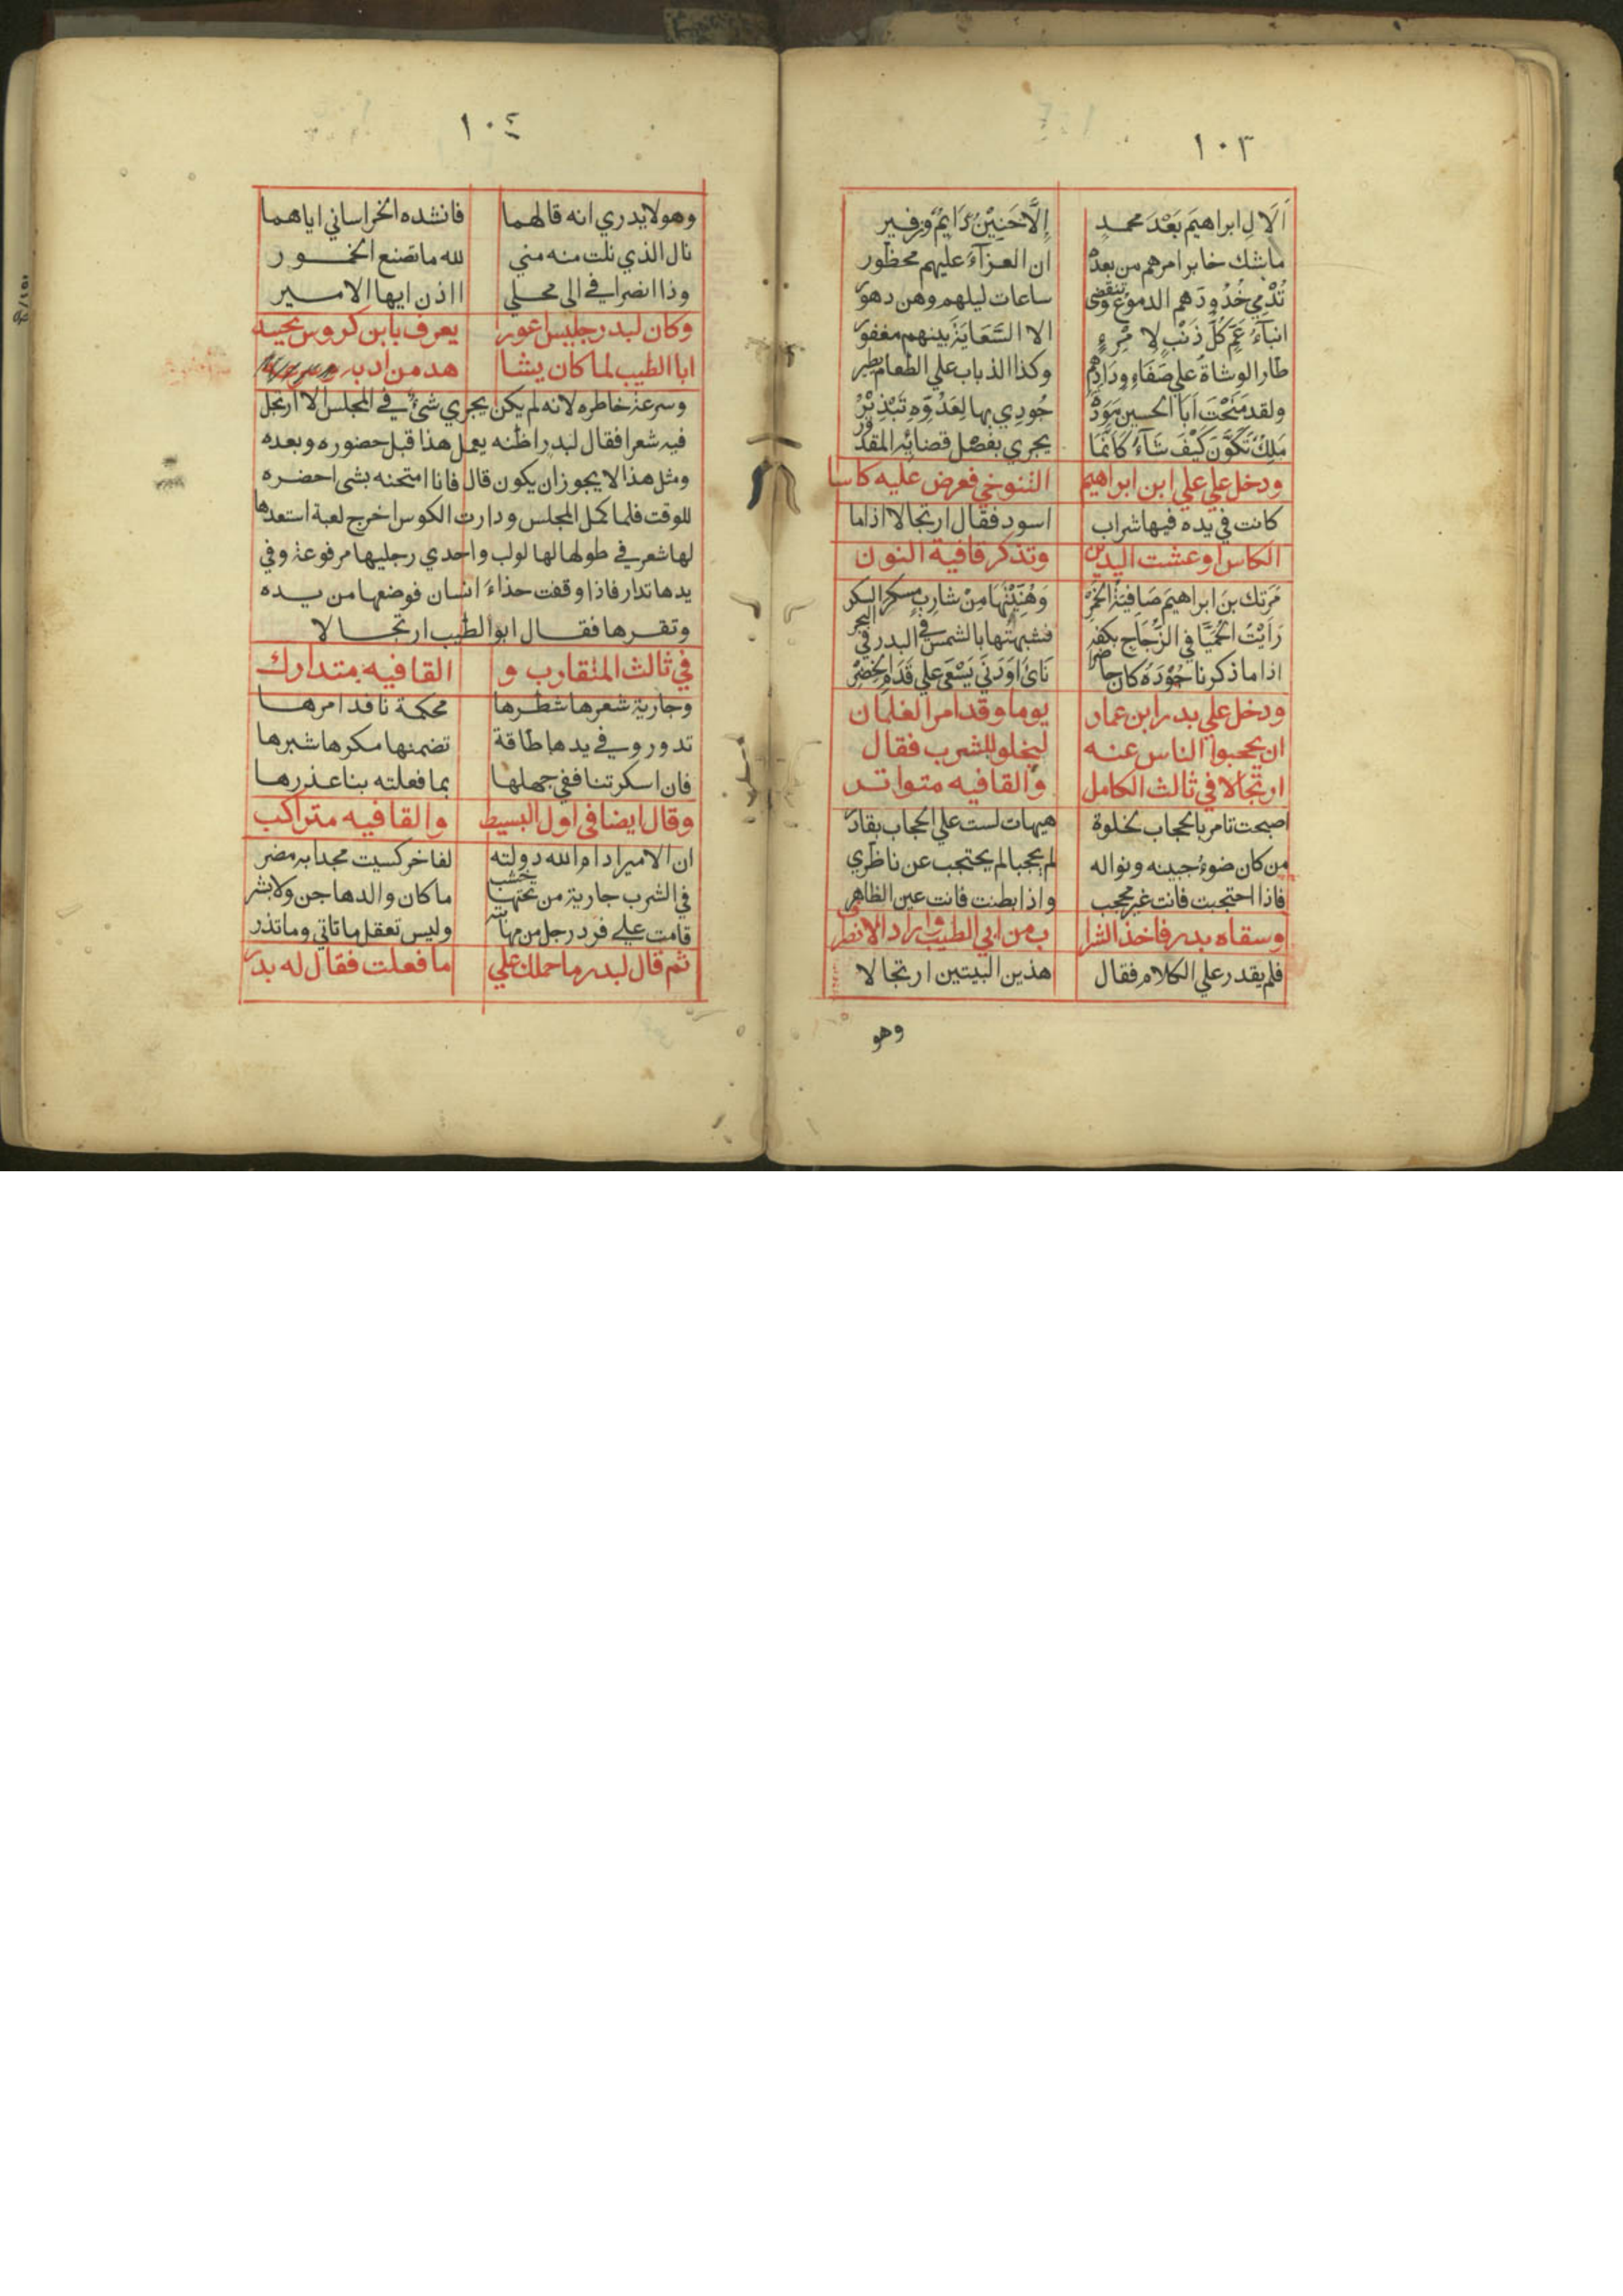 ١٠٣
أَلَالِ ابراهيمَ بَعْدَ محمدٍ إِلَّا حَنِيْنٌ دَايمٌ وزفير
ماشك خابر امرهم من بعده ان العزآءَ عليهم محظور
تُدْمِي خُدُودَهم الدموع وتنقضى ساعات ليلهم وهن دهور
ابنآءُ عَمٍّ كُلُّ ذَنْبٍ لِامْرِءٍ الا السَّعَايَةَ بينهم مغفور
طار الوشاةُ علي صَفَاءِ ودَادِهِم وكذا الذباب علي الطعام يطير
ولقد مَنَحْتَ اَبَا الحسين مَوَدَّةً جُودِي بها لِعَدُوِّهِ تَبْذِيْرُ
مَلِكٌ تَكَوَّنَ كَيْفَ شَآءَ كَانَّمَا يجري بفصل قضائِهِ المقدور
ودخل علي علي ابن ابراهيم التنوخي فعرض عليه كاسا
كانت في يده فيها شراب اسود فقال ارتجالا اذا ما
الكاس ارعشت اليدين وتذكر قافية النون
مَرَتك بنَ ابراهيمَ صَافِيَةُ الخَمْرُ وَهُنِّيْتَهَا مِنْ شارِبٍ مسكر السكر
رَاَيْتُ الحُمَيَّا في الزُّجَاجِ بكفهِ فشبهتُها بالشمس في البدر في البحر
اذا ما ذكرنا جُوْدَهُ كان حاضرا نَائَ اَوْدَنَي يَسْعَى علي قَدَمِ الخِضِرْ
ودخل علي بدر ابن عمار يوما وقد امر الغلمان
ان يحجبوا الناس عنه ليخلو للشرب فقال
ارتجالا في ثالث الكامل والقافيه متواتر
اصبحت تامر بالحجاب لخلوة هيهات لست علي الحجاب بقادر
من كان ضوءُ جبينه ونواله لم يحجبا لم يحتجب عن ناظري
فاذا احتجبت فانت غير محجب واذا بطنت فانت عين الظاهر
وسقاه بدر فاخذ الشراب من ابي الطيب واراد الانصراف
فلم يقدر علي الكلام فقال هذين البيتين ارتجالا
وهو
١٠٤
وهو لا يدري انه قالهما فانشده الخراساني اياهما
نال الذي نلت منه مني لله ما تصنع الخمور
وذا انصرافي الى محلي ااذن ايها الامير
وكان لبدر جليس اعور يعرف بابن كروس يحسد
ابا الطيب لما كان يشا هد من ادبه
وسرعة خاطره لانه لم يكن يجري شئ في المجلس الا ارتجل
فيه شعرا فقال لبدر اظنه يعمل هذا قبل حضوره وبعده
ومثل هذا لا يجوز ان يكون قال فانا امتحنه بشى احضره
للوقت فلما كمل المجلس ودارت الكوس اخرج لعبة استعدها
لها شعر في طولها لها لولب واحدي رجليها مرفوعة وفي
يدها تدار فاذا وقفت حذاءَ انسان فوضعها من يده
وتقرها فقال ابو الطيب ارتجالا
في ثالث المتقارب و القافيه متدارك
وجارية شعرها شطرها محكمة نافد امرها
تدور وفي يدها طاقة تضمنها مكرها شبرها
فان اسكرتنا ففي جهلها بما فعلته بنا عذرها
وقال ايضا في اول البسيط والقافيه متراكب
ان الامير ادام الله دولته لفاخر كسيت مجدا به مضر
في الشرب جارية من تحتها خشب ما كان والدها جن ولا بشر
قامت علي فرد رجل من مهابته وليس تعقل ما تاتي وما تذر
ثم قال لبدر ما حملك علي ما فعلت فقال له بدر